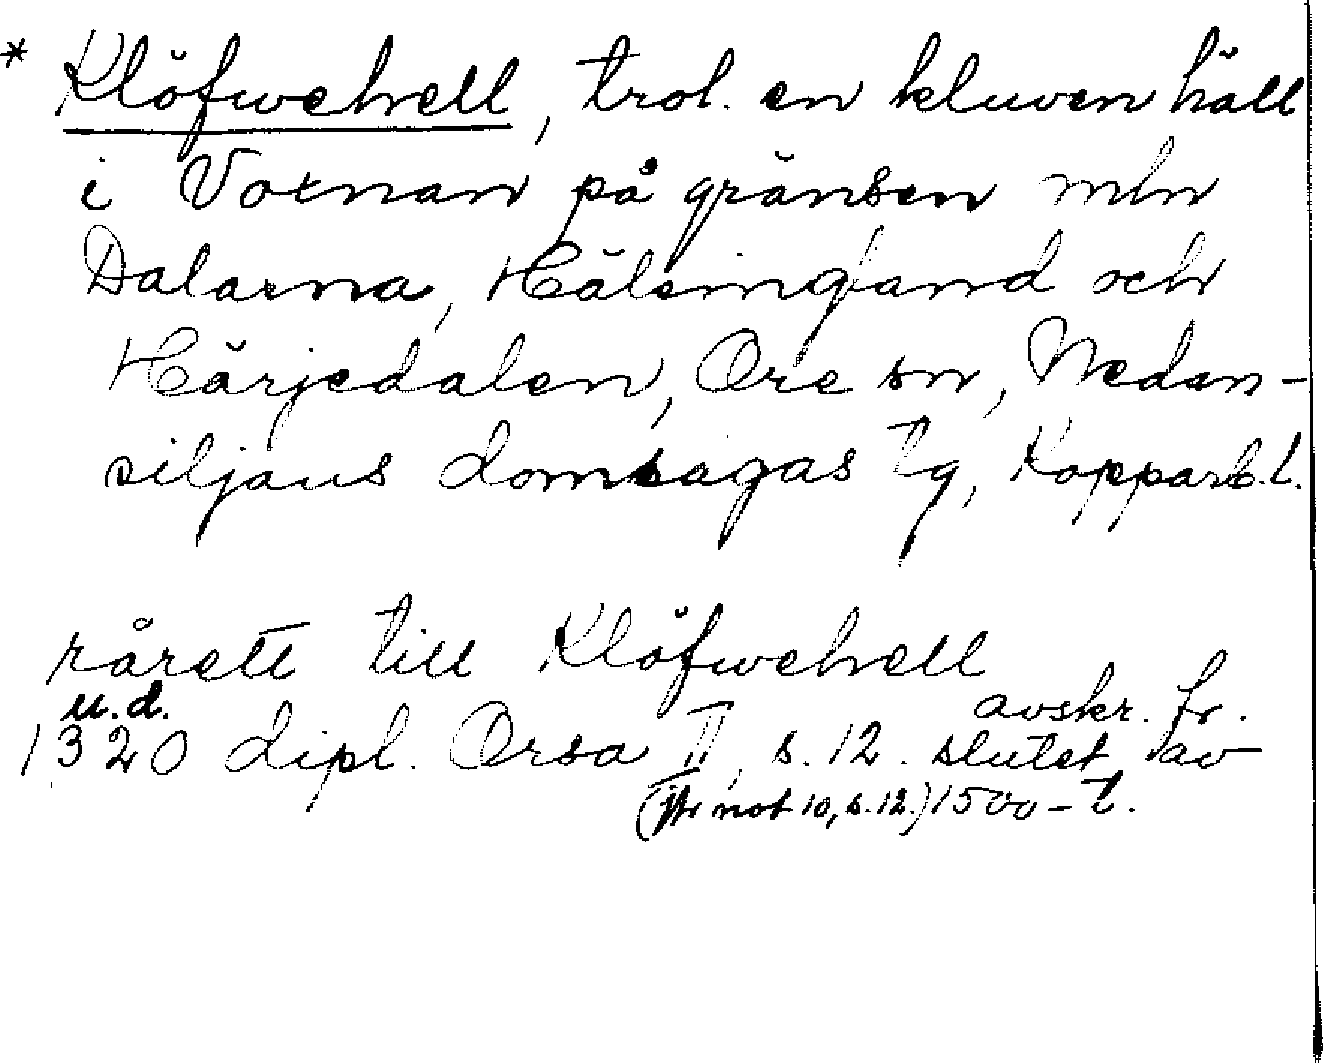 * Klöfwehell, trol. en kluven häll
i Voxnan på gränsen mln
Dalarna, Hälsingland och
Härjedalen, Ore sn, Nedan-
siljans domsagas tg, Kopparb. l.
rårett till Klöfwehell
u. d.
1320 dipl. Orsa II, s. 12. avskr. fr.
slutet av
(jfr not 10, s. 12.) 1500-t.